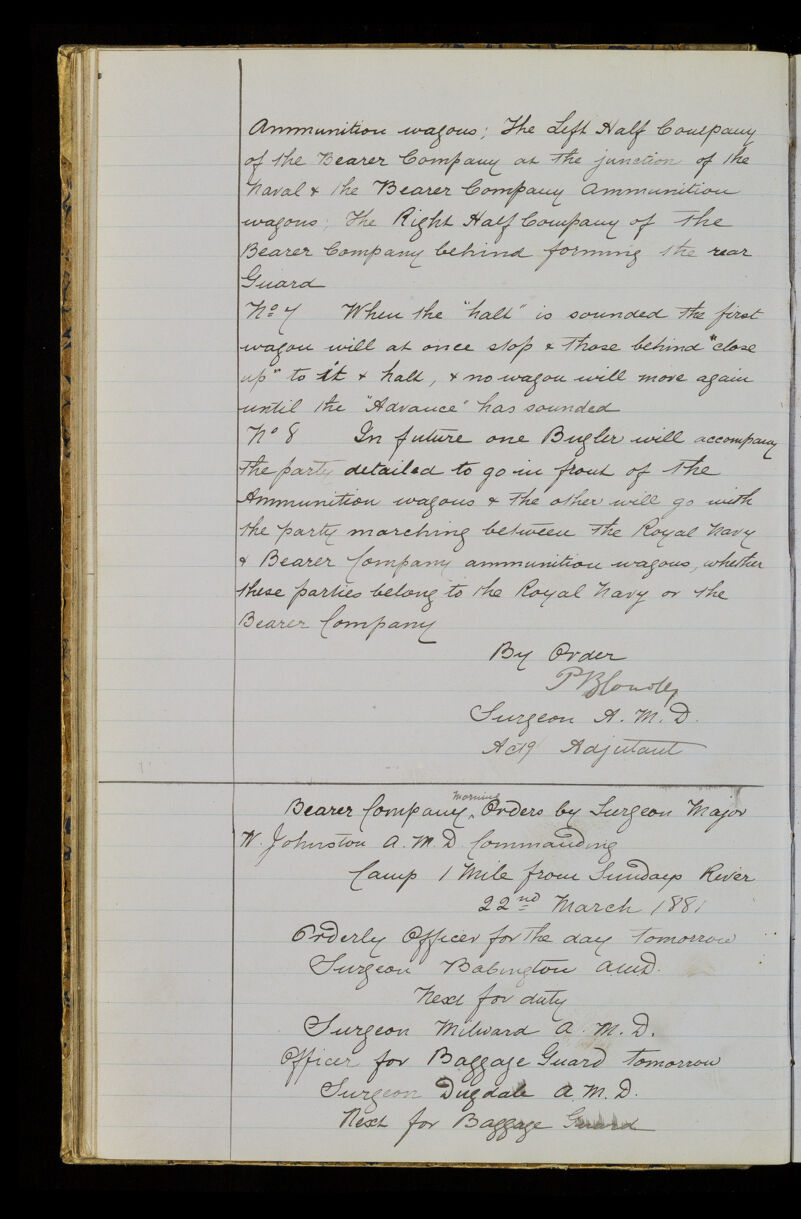 Ammunition wagons; The Left Half Company
of the Bearer Company at the junction of the
Naval & the Bearer Company Ammunition
wagons; The Right Half Company of the
Bearer Company behind forming the rear
Guard
No 7 When the "halt" is sounded the first
wagon will at once stop & those behind "close
up" to it & halt, & no wagon will move again
until the "Advance" has sounded
No 8 In future one Bugler will accompany
the party detailed to go in front of the
Ammunition wagons & the other will go with
the party marching between the Royal Navy
& Bearer Company ammunition wagons, whether
these parties belong to the Royal Navy or the
Bearer Company
By Order
Surgeon A. M. D.
Actg Adjutant
Bearer Company Morning Orders by Surgeon Major
W. Johnston A. M. D. Commanding
Camp 1 Mile from Sundays River
22nd March 1881
Orderly Officer for the day tomorrow
Surgeon Babington AMD.
Next for duty
Surgeon Milward A. M. D.
Officer for Baggage Guard tomorrow
Surgeon Dugdale A. M. D.
Next for Baggage Guard